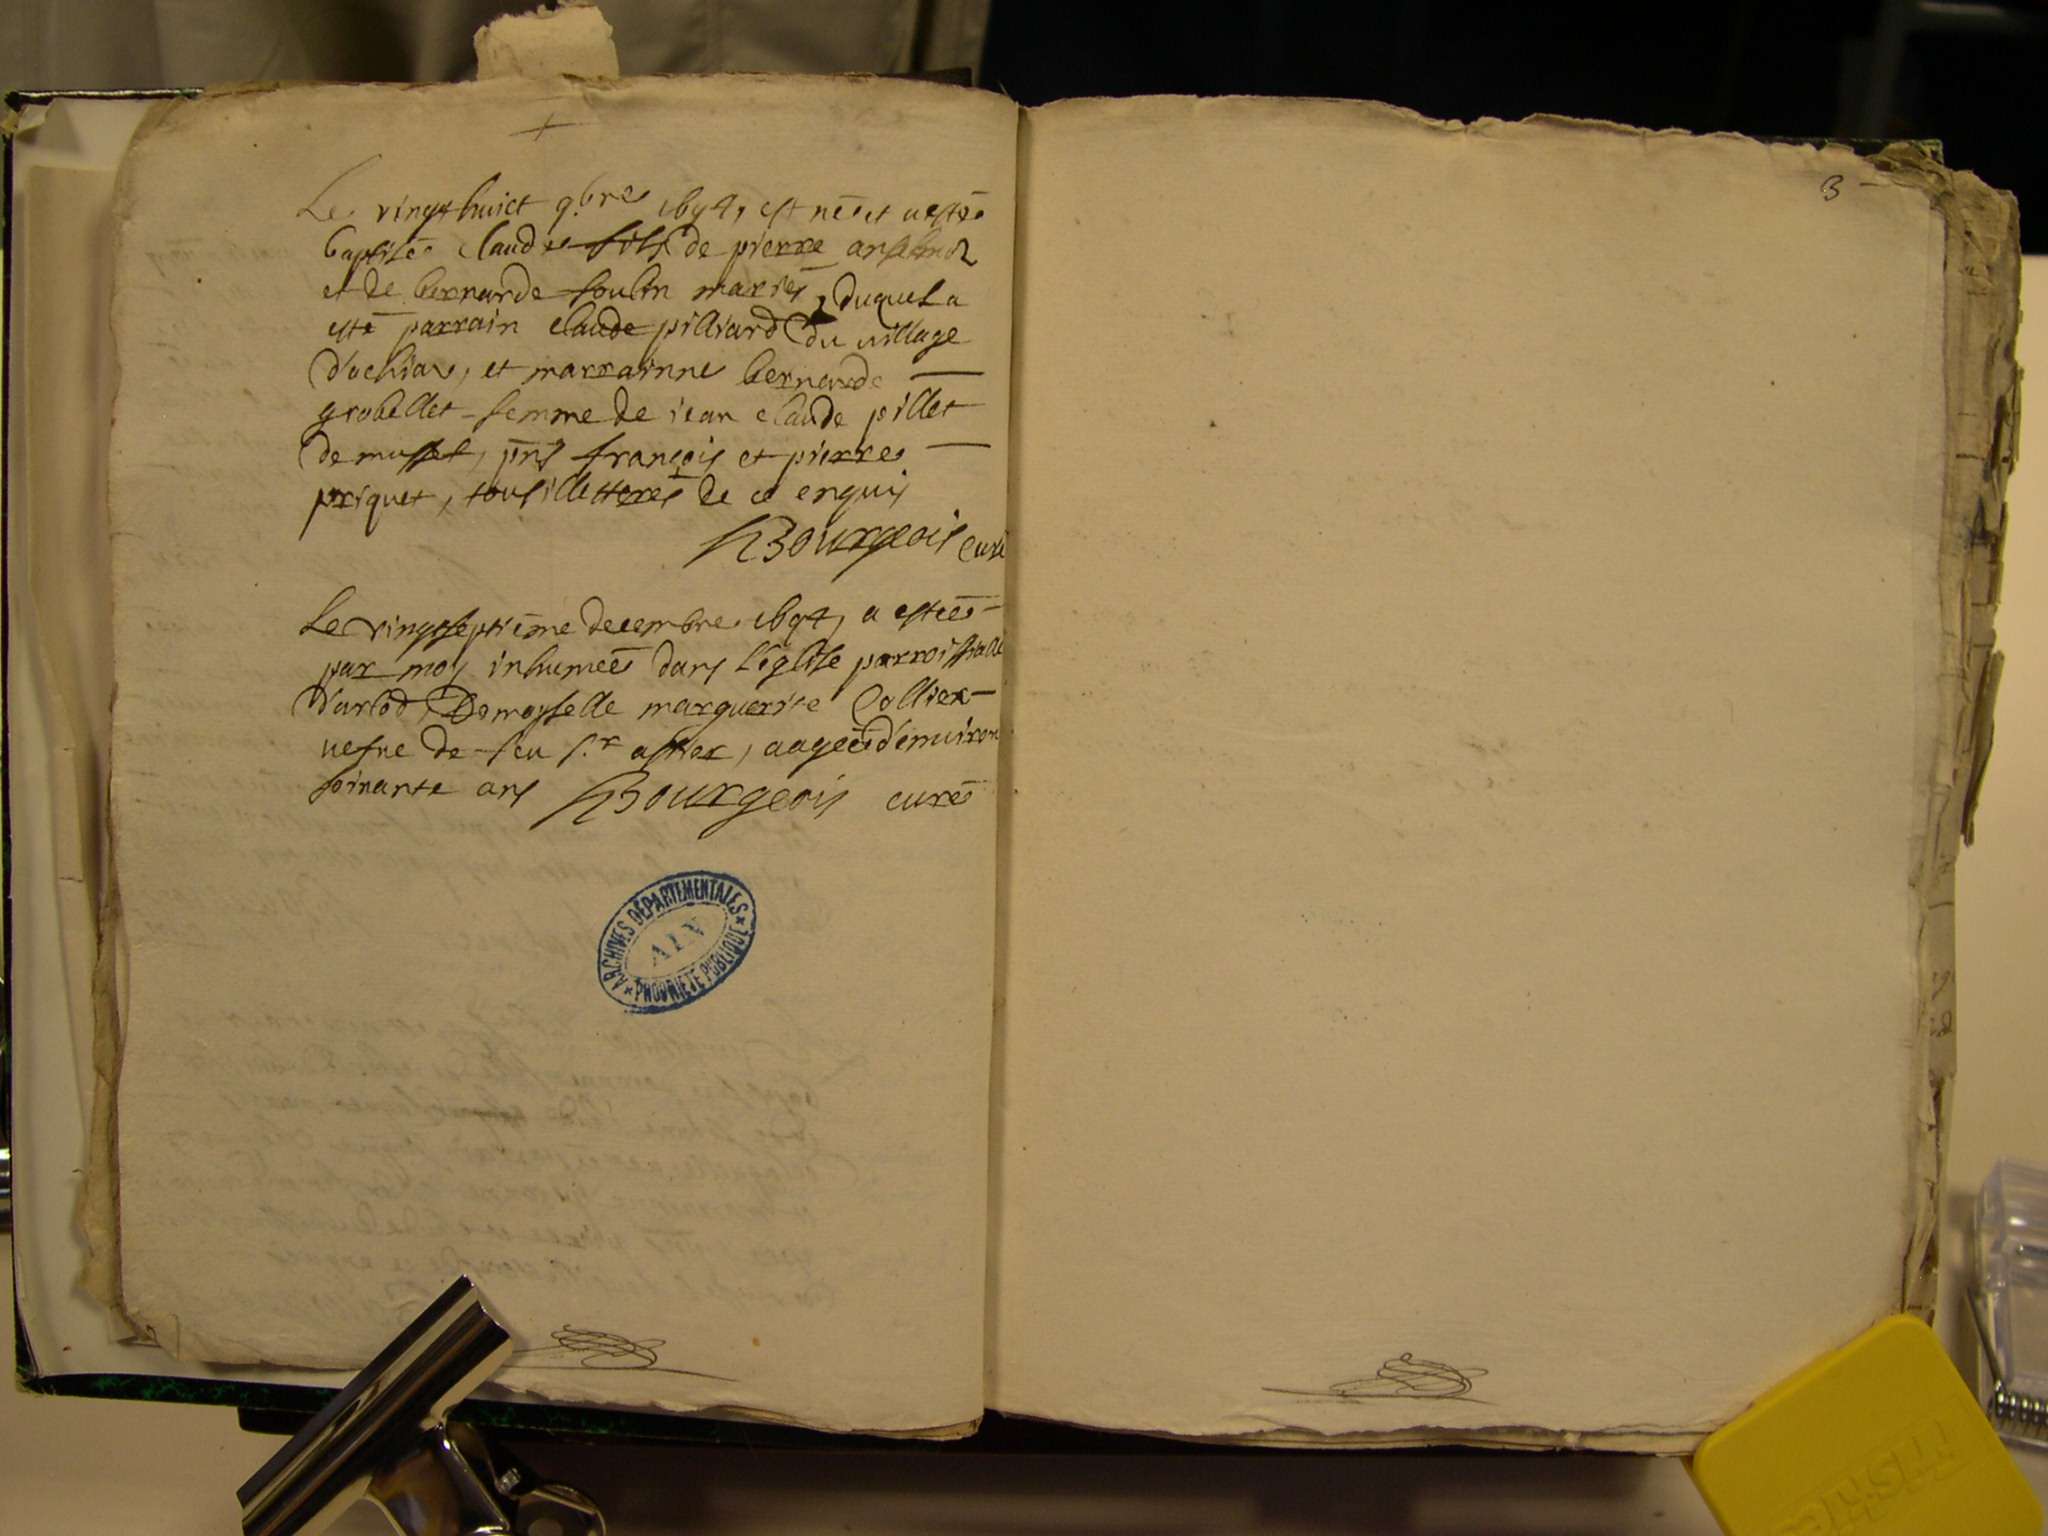 Le vingthuict 9.bre 1694, est né et a esté
baptisé claude fils de pierre anselmoz
et de bernarde soulin mariés, duquel a
esté parrain claude pilliard du village
d'ochiaz, et marrainne bernarde
grobellet femme de jean claude pillet
de mussel, pns françois et pierre
priquet, tous illetterés de ce enquis
Bourgeois curé
Le vingtseptiéme decembre 1694, a estée
par moy inhumeé dans l'eglise parroissialle
d'arlod, Demoyselle marguerite Collier
vefve de feu s.r astier, aageé d'environ
soixante ans Bourgeois curé
ARCHIVES DÉPARTEMENTALES
AIN
PROPRIÉTÉ PUBLIQUE
3